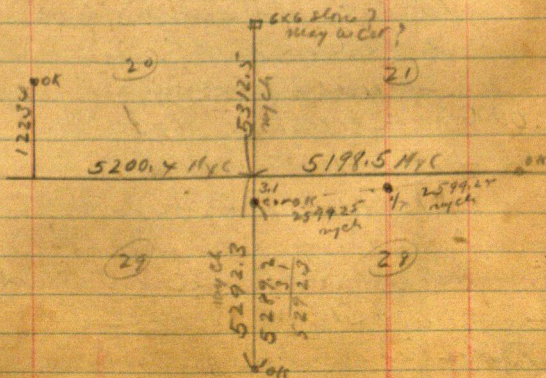 6x6 Stone?
may w Cor?
20
21
OK
1223.4
5312.5
nych
5200.4 Nyc
5198.5 Nyc
OK
3.1
cor OK
2599.25
nych
1/2
2599.25
nych
29
28
nych
5292.3
5289.2
3 1
5292.3
OK